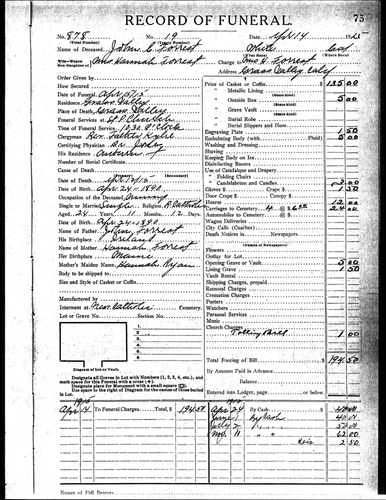 RECORD OF FUNERAL.
75
No. 878 No. 19 Date Apr 14 1915
(Total Number) (Yearly Number)
Name of Deceased John C Forrest White Cal
Mrs Hannah Forrest Charge to Mrs H. Forrest
Address Grass Valley Cal
Order Given by
How Secured
Date of Funeral Apr 15/15
Place of Death Grass Valley
Funeral Services at St P. Church
Time of Funeral Service 10.30 O'Clock
Clergyman Rev. Father
Certifying Physician Dr. Jones
His Residence
Number of Burial Certificate
Cause of Death
Date of Death
Date of Birth Apr 24-1890
Occupation of the Deceased
Single or Married Single Religion
Aged 24 Years 11 Months 12 Days
Date of Birth Apr 24-1890
Name of Father John Forrest
His Birthplace Ireland
Name of Mother Hannah Forrest
Her Birthplace Maine
Mother's Maiden Name Hannah Ryan
Body to be shipped to
Size and Style of Casket or Coffin
Manufactured by
Interment at New Catholic Cemetery
Lot or Grave No. Section No.
Diagram of Lot or Vault.
Designate all Graves in Lot with Numbers (1, 2, 3, 4, etc.), and mark space for this Funeral with a cross (+).
Designate place for Monument with a small square
Use space to the right of Diagram for the names of those buried in Lot.
Price of Casket or Coffin $ 135 00
" Metallic Lining
" Outside Box 5 00
" Grave Vault
" Burial Robe
" Burial Slippers and Hose
Engraving Plate 1 50
Embalming Body ( Fluid) 5 00
Washing and Dressing
Shaving
Keeping Body on Ice
Disinfecting Rooms
Use of Catafalque and Drapery
" Folding Chairs
" Candelabrum and Candles 3 00
Gloves $ Crape $ 1 50
Door Crape $ Canopy $
Hearse 12 00
Carriages to Cemetery 4 @ $6.00 24 00
Automobiles to Cemetery @ $
Wagon Deliveries
City Calls (Coaches)
Death Notices in Newspapers
(Names of Newspapers)
Flowers
Outlay for Lot
Opening Grave or Vault 5 00
Lining Grave 1 50
Vault Rental
Shipping Charges, prepaid
Removal Charges
Cremation Charges
Porters
Watchers
Personal Services
Music
Church Charges
Tolling Bell 1 00
Total Footing of Bill $ 194 50
By Amount Paid in Advance
Balance
Entered into Ledger, page or below
1915
Apr 14 To Funeral Charges Total, $ 194 50
1915
Apr 24 By Cash $ 40 00
June 1 By Cash 40 00
July 2 " " 50 00
Aug 11 " " 62 00
Dis 2 50
Names of Pall Bearers